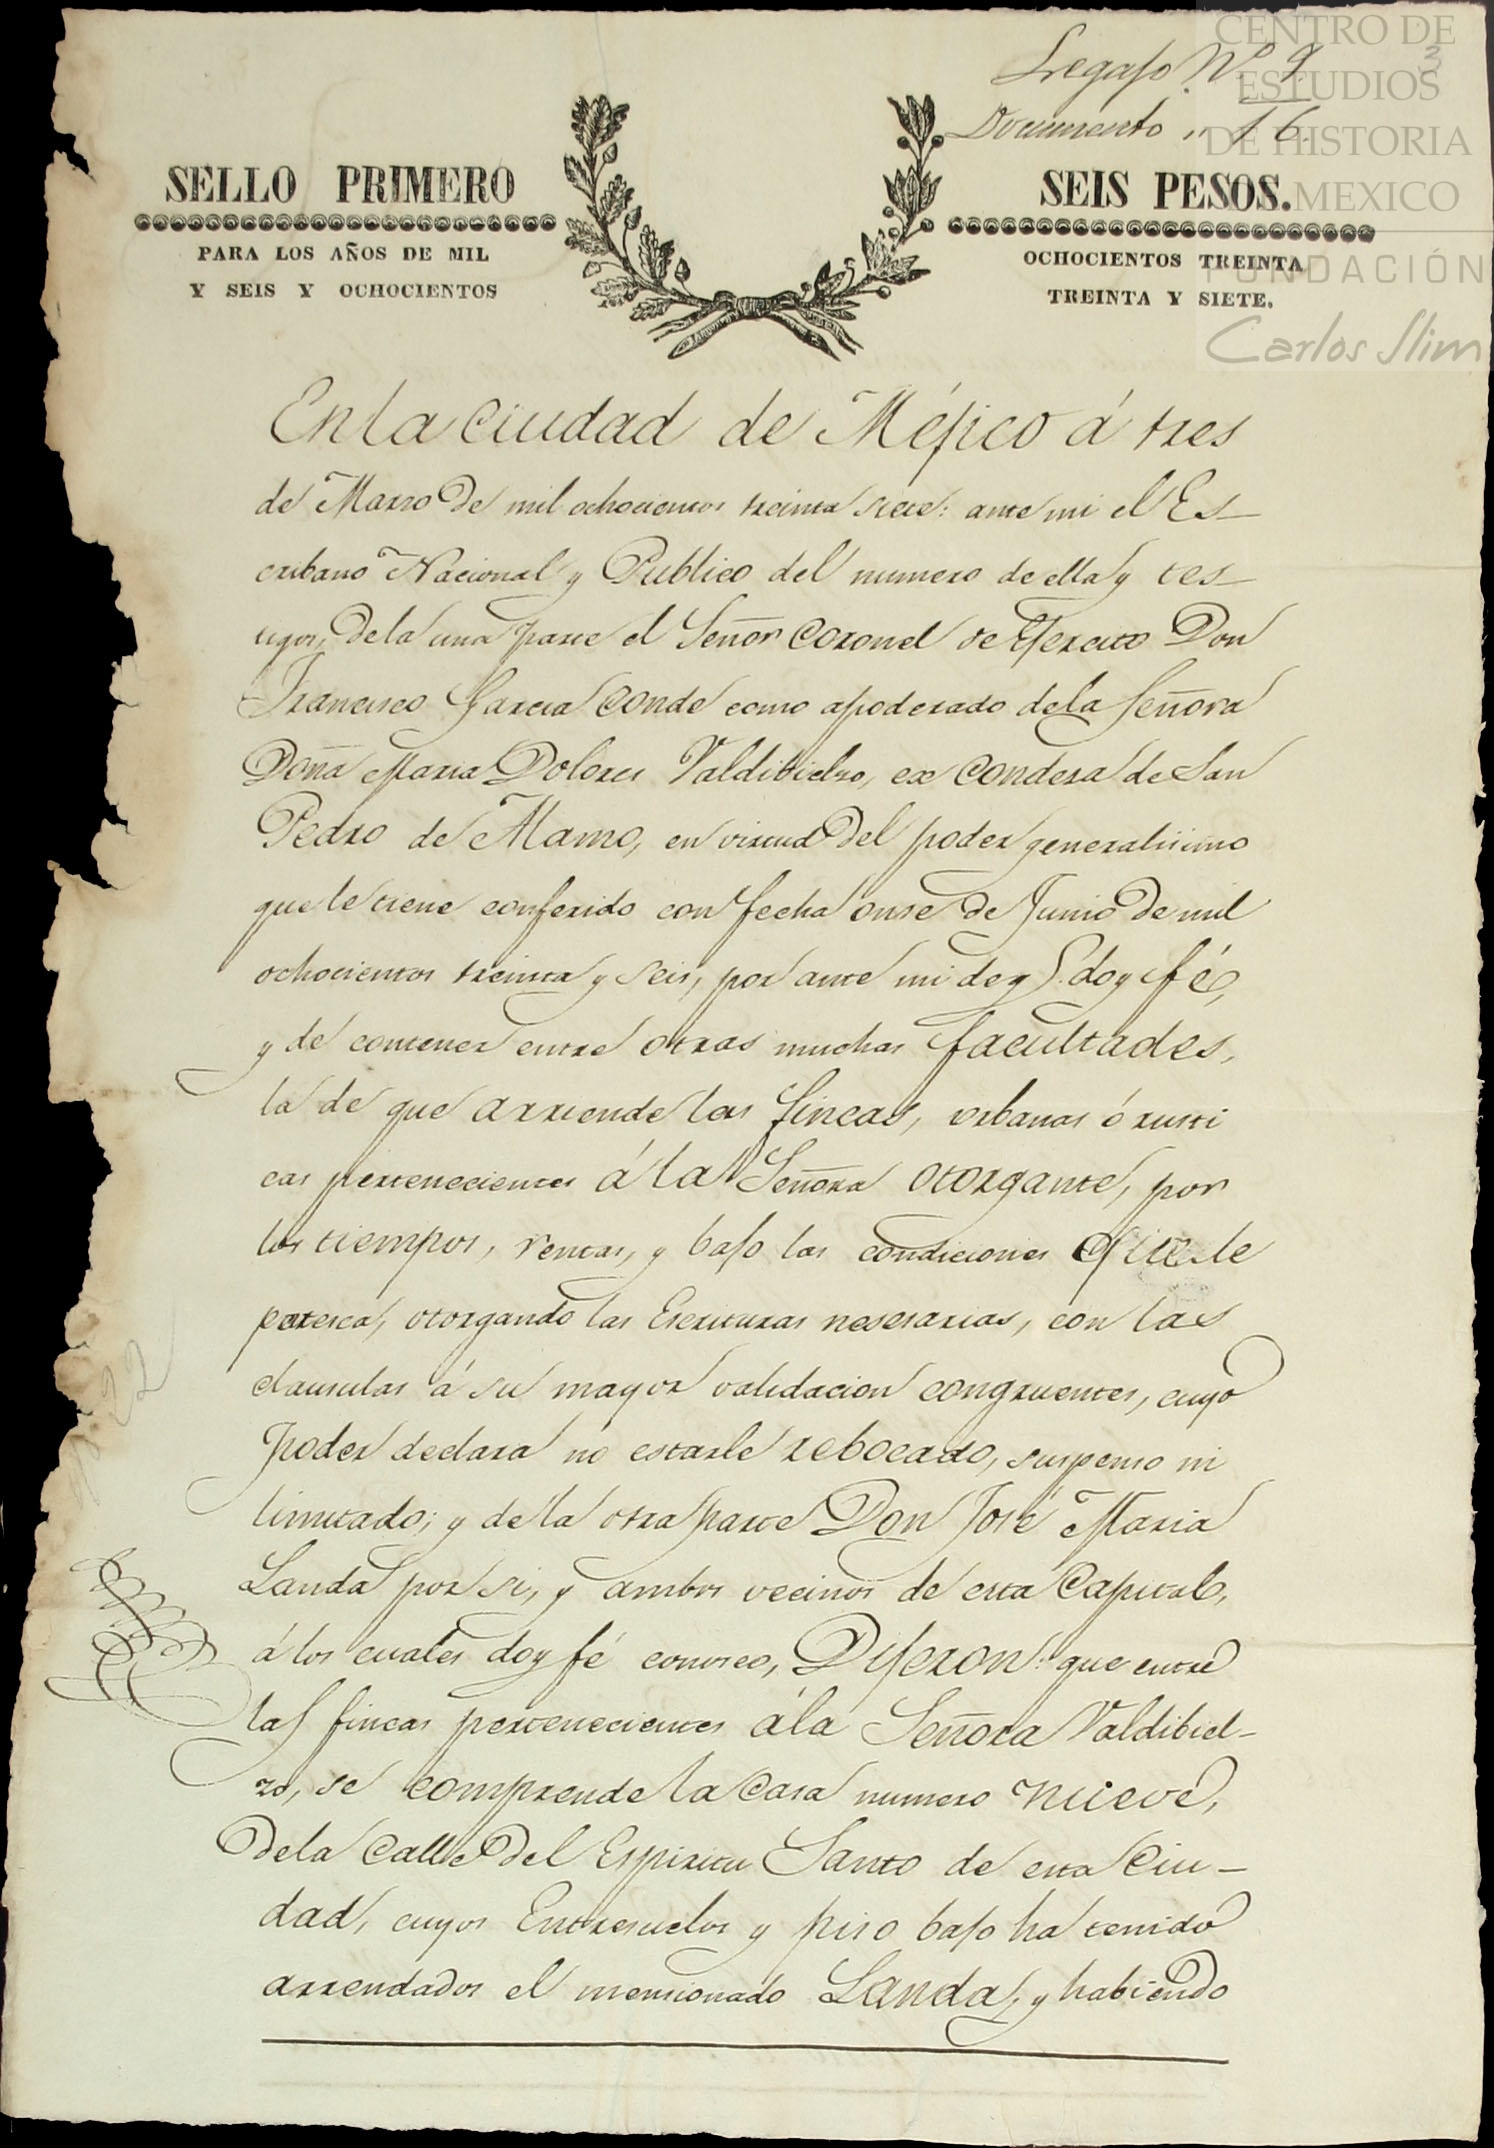 CENTRO DE
ESTUDIOS
DE HISTORIA
MEXICO
FUNDACIÓN
Carlos Slim
3
Legajo Nº 9
Documento " 16.
SELLO PRIMERO
SEIS PESOS.
PARA LOS AÑOS DE MIL
OCHOCIENTOS TREINTA
Y SEIS Y OCHOCIENTOS
TREINTA Y SIETE.
En la Ciudad de Méjico á tres
de Marzo de mil ochocientos treinta siete: ante mi el Es-
cribano Nacional y Publico del numero de ella y tes-
tigos, de la una parte el Señor Coronel de Ejercito Don
Francisco Garcia Conde como apoderado de la Señora
Doña Maria Dolores Valdibielzo, ex Condesa de San
Pedro de Alamo, en virtud del poder generalisimo
que le tiene conferido con fecha onse de Junio de mil
ochocientos treinta y seis, por ante mi de q.^e doy fé,
y de contener entre otras muchas facultades,
la de que arriende las fincas, urbanas ó rusti
cas pertenecientes á la Señora otorgante, por
los tiempos, rentas, y bajo las condiciones que le
paresca, otorgando las Escrituras nesesarias, con las
clausulas á su mayor validacion congruentes, cuyo
Poder declara no estarle rebocado, suspenso ni
limitado; y de la otra parte Don José Maria
Landa por si, y ambos vecinos de esta Capital,
á los cuales doy fé conosco, Dijeron: que entre
las fincas pertenecientes á la Señora Valdibiel-
zo, se comprende la Casa numero nueve,
de la Calle del Espiritu Santo de esta Ciu-
dad, cuyos Entresuelos y piso bajo ha tenido
arrendados el mensionado Landa, y habiendo
22